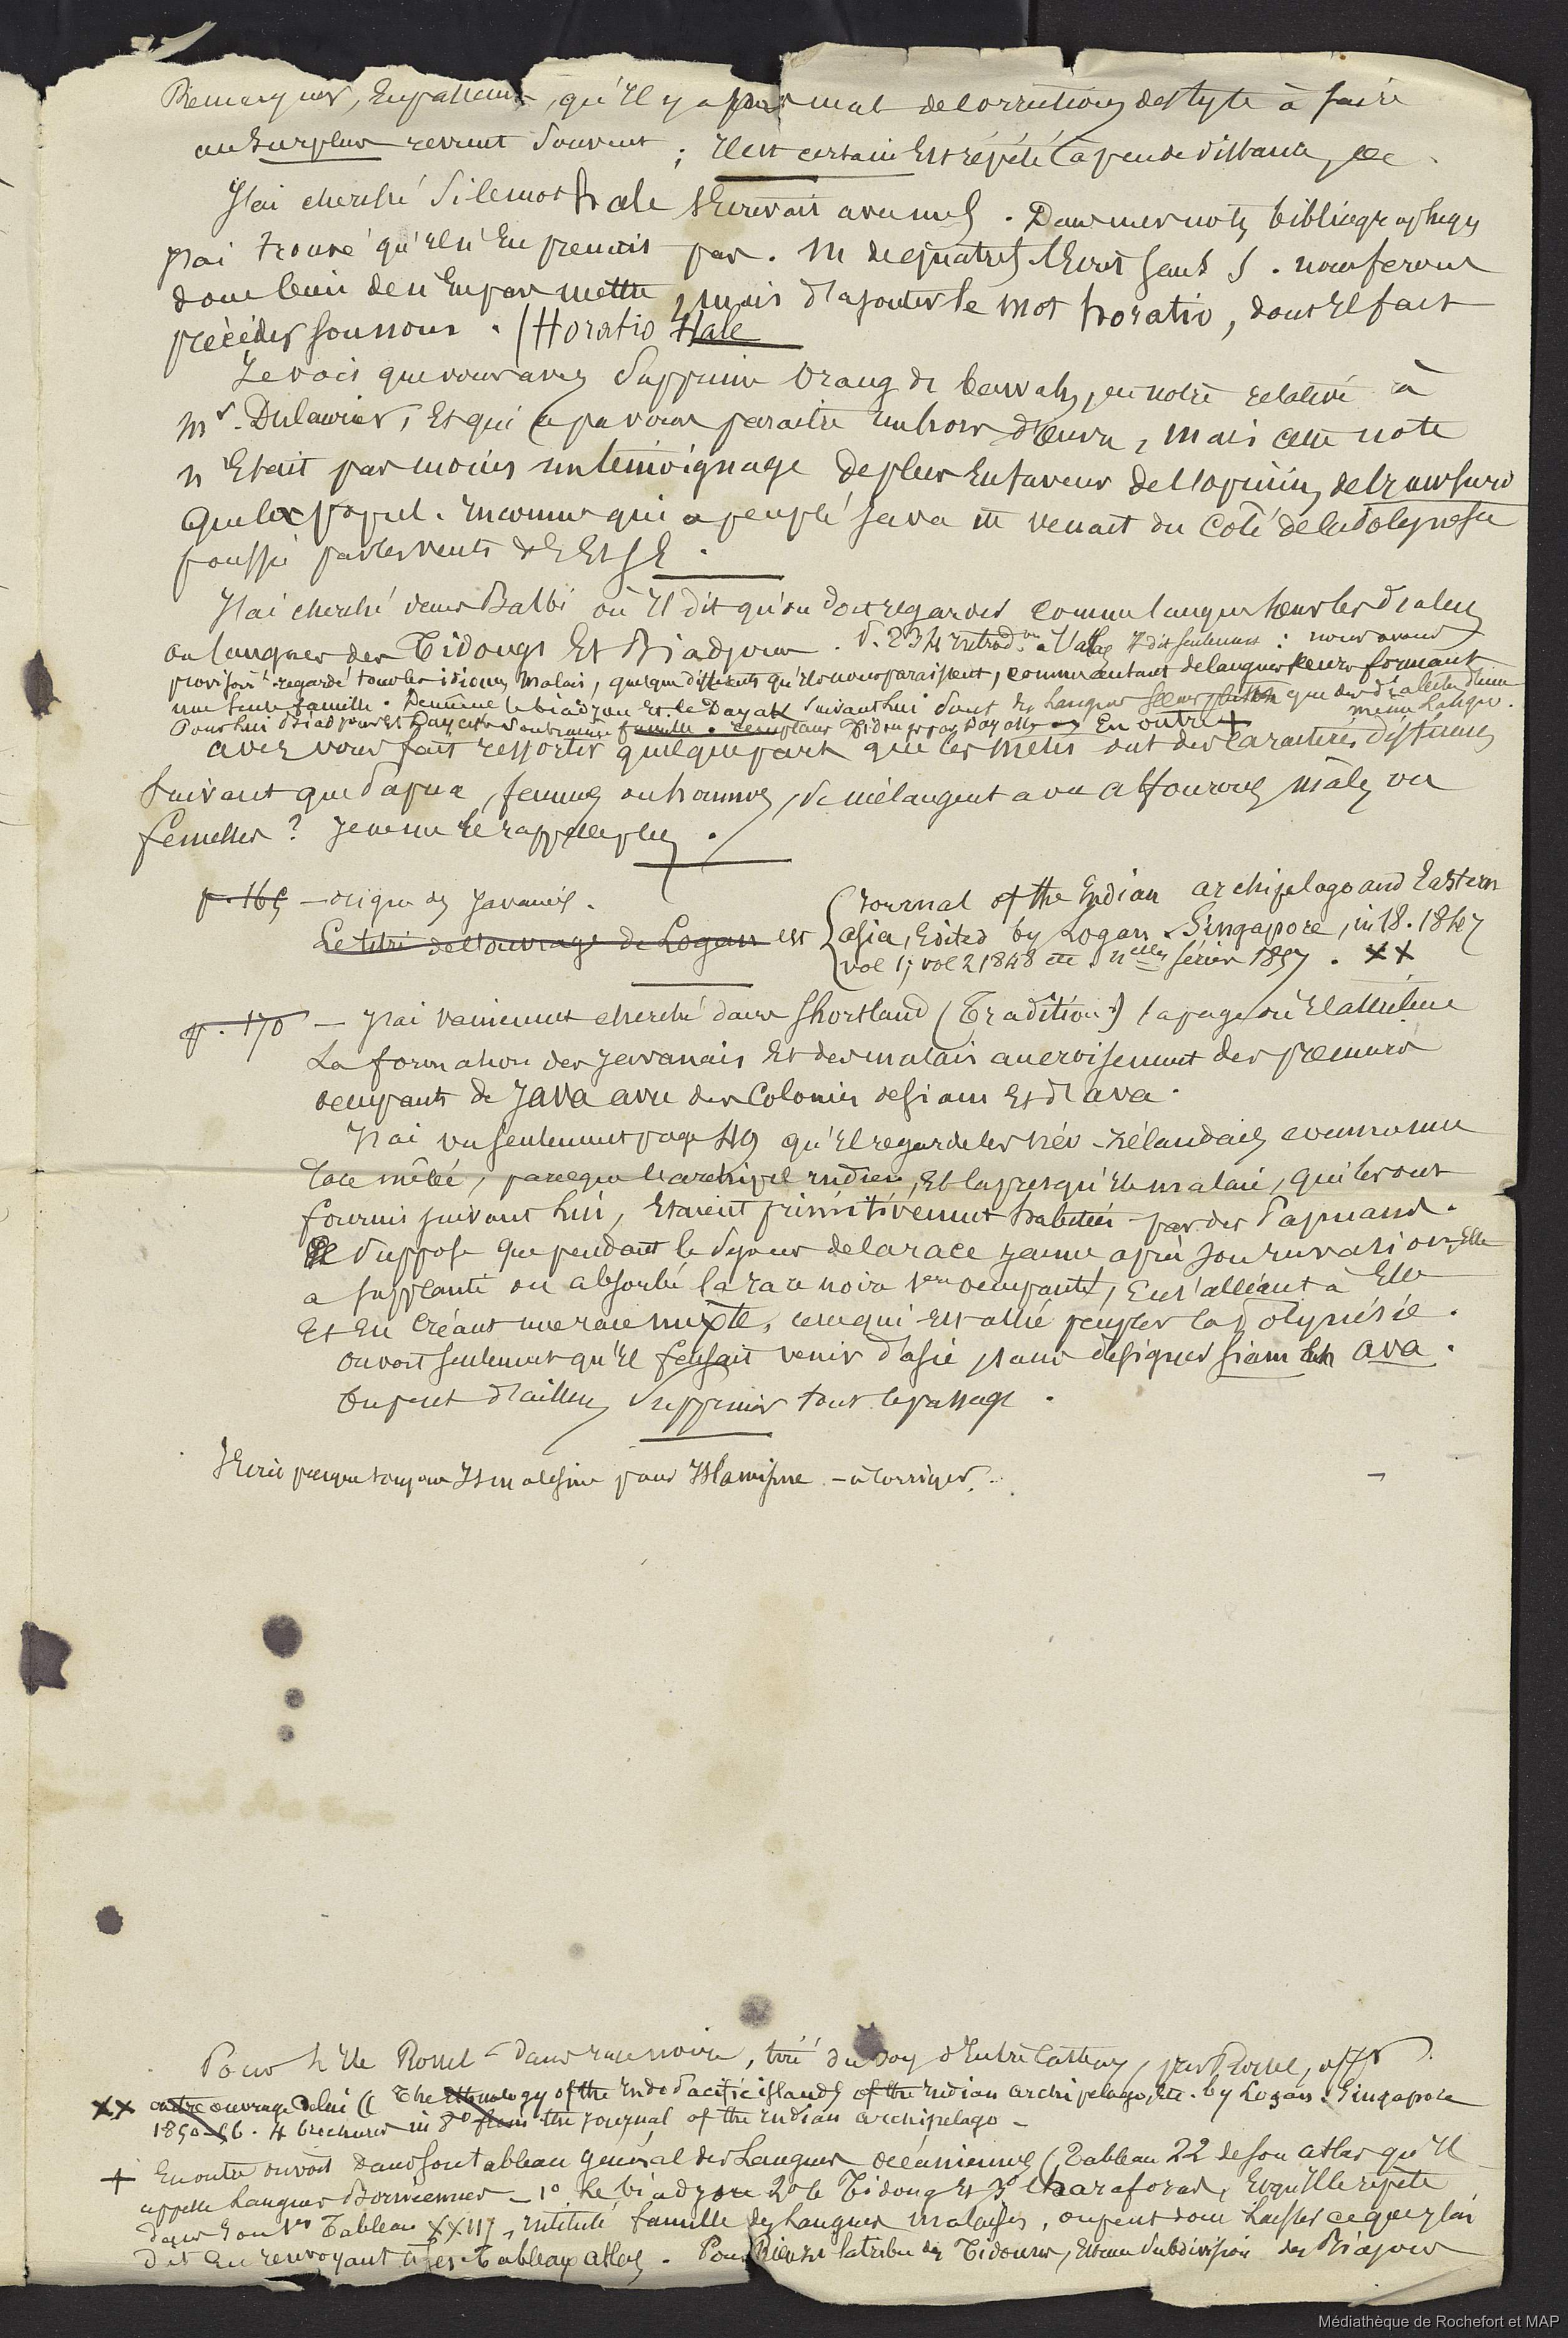 Remarquer, en passant, qu'il y a pas mal de corrections de style à faire
au surplus revient souvent ; il est certain est répété à peu de distance, etc.
J'ai cherché si le mot hale s'écrivait avec un s. Dans mes notes bibliographiques
j'ai trouvé qu'il n'en prenait pas. M de quatref. l'écrit sans s. nous ferons
donc bien de n'en pas mettre, mais d'ajouter le mot horatio, dont il fait
précéder son nom. (Horatio Hale
Je vois que vous avez supprimé Orang de la note relative à
Mr. Dulaurier, et qui a pu vous paraitre un hors d'œuvre, mais cette note
n'était pas moins un témoignage de plus en faveur de l'opinion de Crawfurd
que la popul. inconnue qui a peuplé java venait du coté de la Polynésie
poussée par les vents d'E et SE.
J'ai cherché dans Balbi où il dit qu'on doit regarder comme langues sœurs les dialectes
ou langues des Tidongs et Biadjous. p. 234 introd.on à l'atlas il dit seulement : nous avons
provisoirt regardé tous les idiomes malais, quelque différents qu'ils nous paraissent, comme autant de langues sœurs formant
une seule famille. De même le biadjou et le Dayak suivant lui sont des langues sœurs plutôt que des dialectes d'une
même langue.
Pour lui Biadjous et Dayaks famille. Tidongs Dayaks En outre +
avez vous fait ressortir quelque part que les métis ont des caractères différents
suivant que Papua, femmes ou hommes, se mélangent avec alfourous mâles ou
femelles ? Je ne me le rappelle plus.
p. 165 — origine des Javanais.
Le titre de l'ouvrage de Logan est
Journal of the Indian archipelago and Eastern
asia, Edited by Logan. Singapore, in 18. 1847
vol 1, vol 2 1848 etc. nelle série 1857. XX
p. 170 — J'ai vainement cherché dans Shortland (Tradition) la page où il attribue
la formation des javanais et des malais au croisement des premiers
occupants de Java avec des colonies de Siam et d'ava.
J'ai vu seulement page 49 qu'il regarde les Név-zélandais comme une
race mêlée, parce que l'archipel indien, et la presqu'île malaie, qui les ont
fournis suivant lui, étaient primitivement habités par des Papuans.
Il suppose que pendant le séjour de la race jaune après son invasion, elle
a supplanté ou absorbé la race noire 1ère occupante, en s'alliant à elle
et en créant une race mixte, celle qui est allée peupler la Polynésie.
On voit seulement qu'il faisait venir d'asie sans désigner siam ava.
On peut d'ailleurs supprimer tout le passage.
J'écris presque toujours Ismalisme pour Islamisme — à corriger.
Pour l'île Rossel dans race noire, tiré du voy d'Entrecasteaux, par Rossel,
XX autre ouvrage de lui (( The Ethnology of the Indo Pacific islands of the Indian archipelago, etc. by Logan. Singapore
1850-56. 4 brochures in 8° from the journal of the indian archipelago —
+ En outre on voit dans son tableau général des Langues océaniennes (Tableau 22 de son atlas qu'il
appelle langues Bornéennes — 1° Le biadjou 2° le Tidong et 3° l'haraforas, et qu'il le répète
dans son Tableau XXIII, intitulé famille des langues malaises, on peut donc laisser ce que j'ai
dit en renvoyant à ses Tableaux atlas. Pour Rienzi la tribu des Tidouns, est une subdivision des Biajous
Médiathèque de Rochefort et MAP